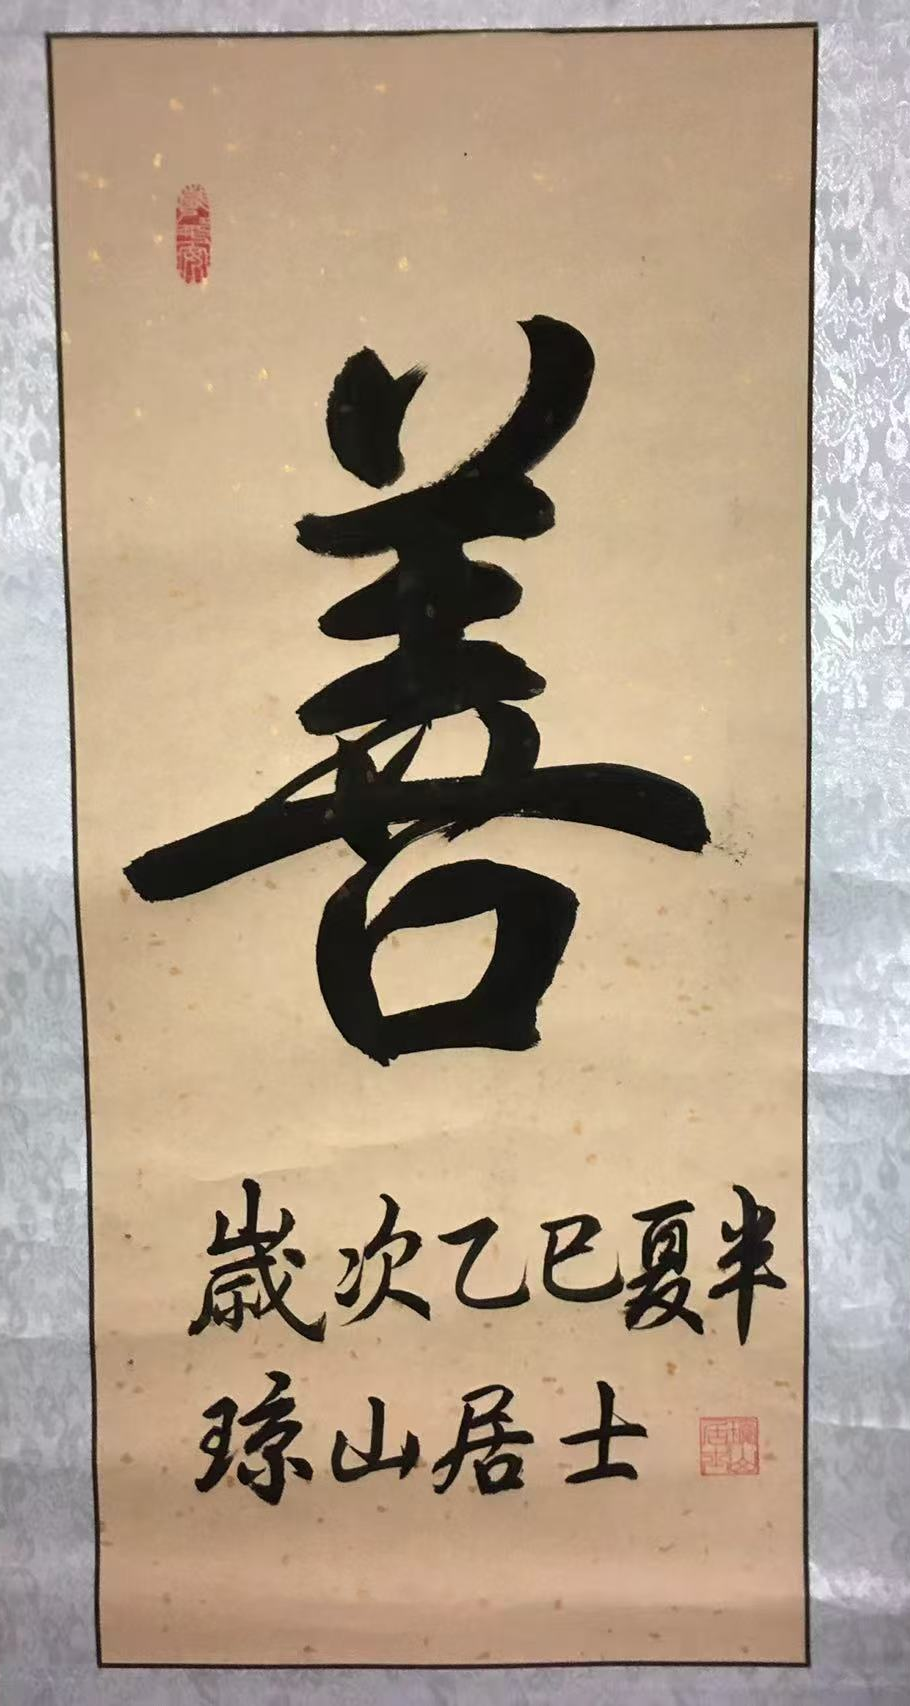 善
歳次乙巳夏半
琼山居士